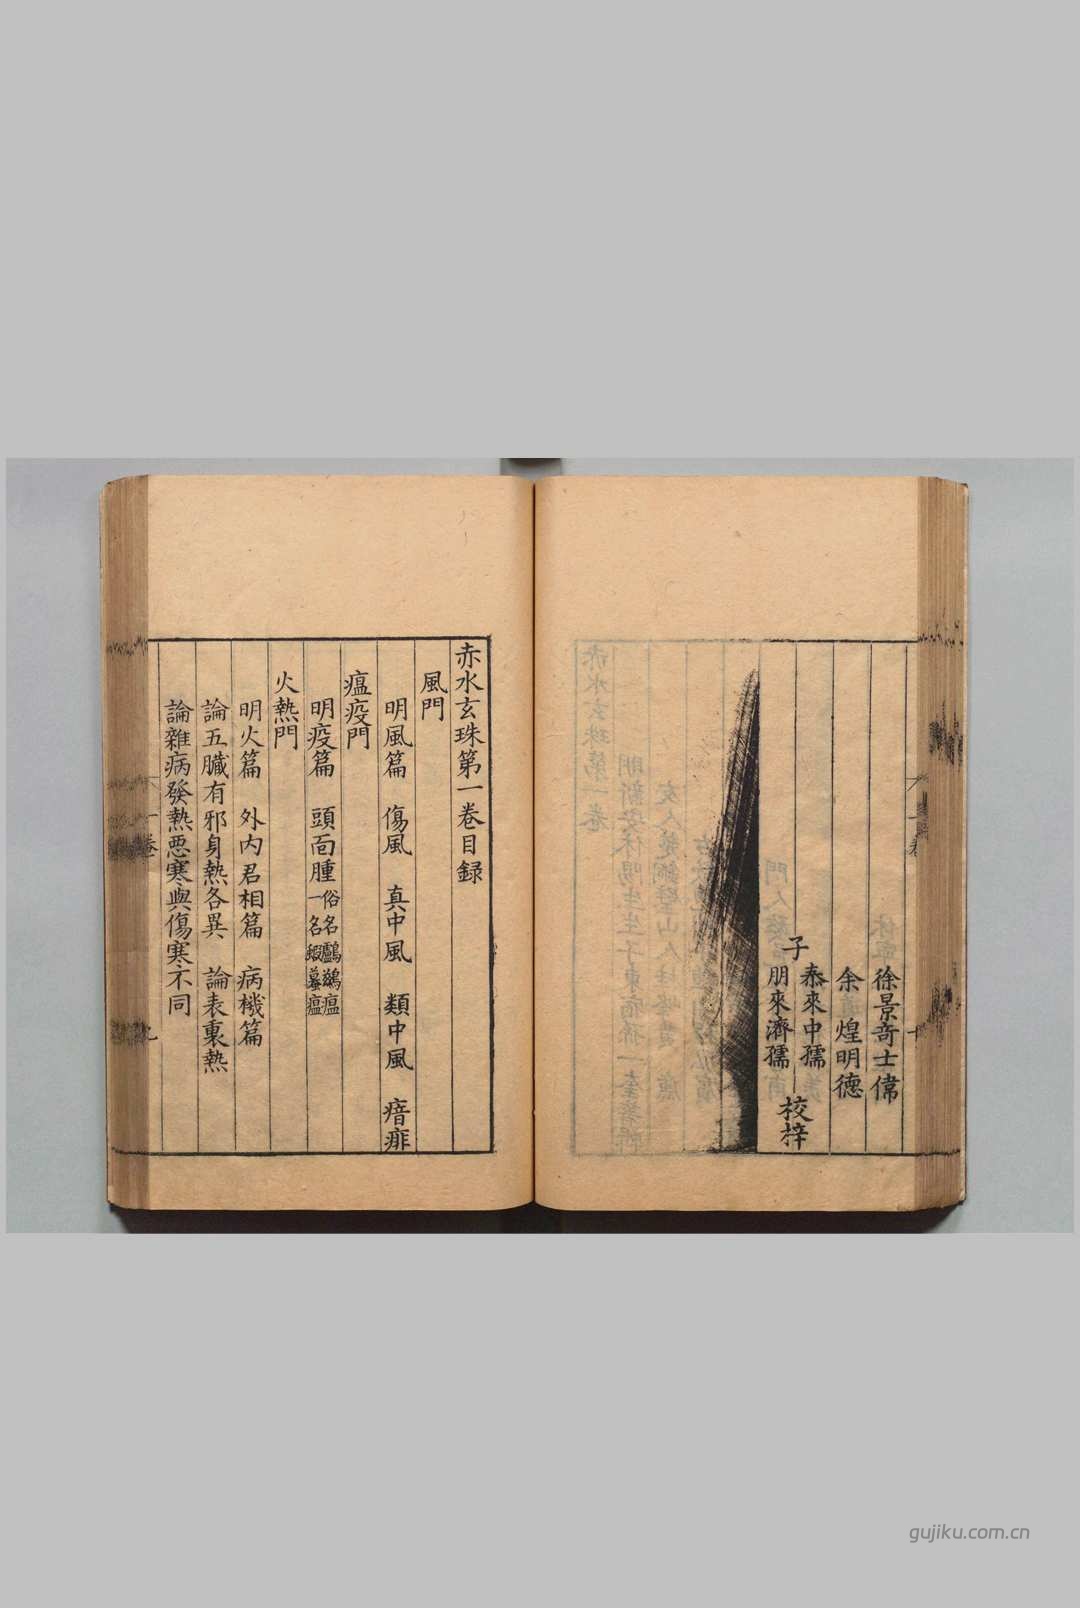 徐景奇士偉
余煌明德
子
泰來中孺
朋來濟孺
校梓
赤水玄珠第一卷目録
風門
明風篇 傷風 真中風 類中風 瘖痱
瘟疫門
明疫篇 頭面腫 俗名鸕鷀瘟 一名蝦蟇瘟
火熱門
明火篇 外內君相篇 病機篇
論五臟有邪身熱各異 論表裏熱
論雜病發熱惡寒與傷寒不同
一卷
gujiku.com.cn